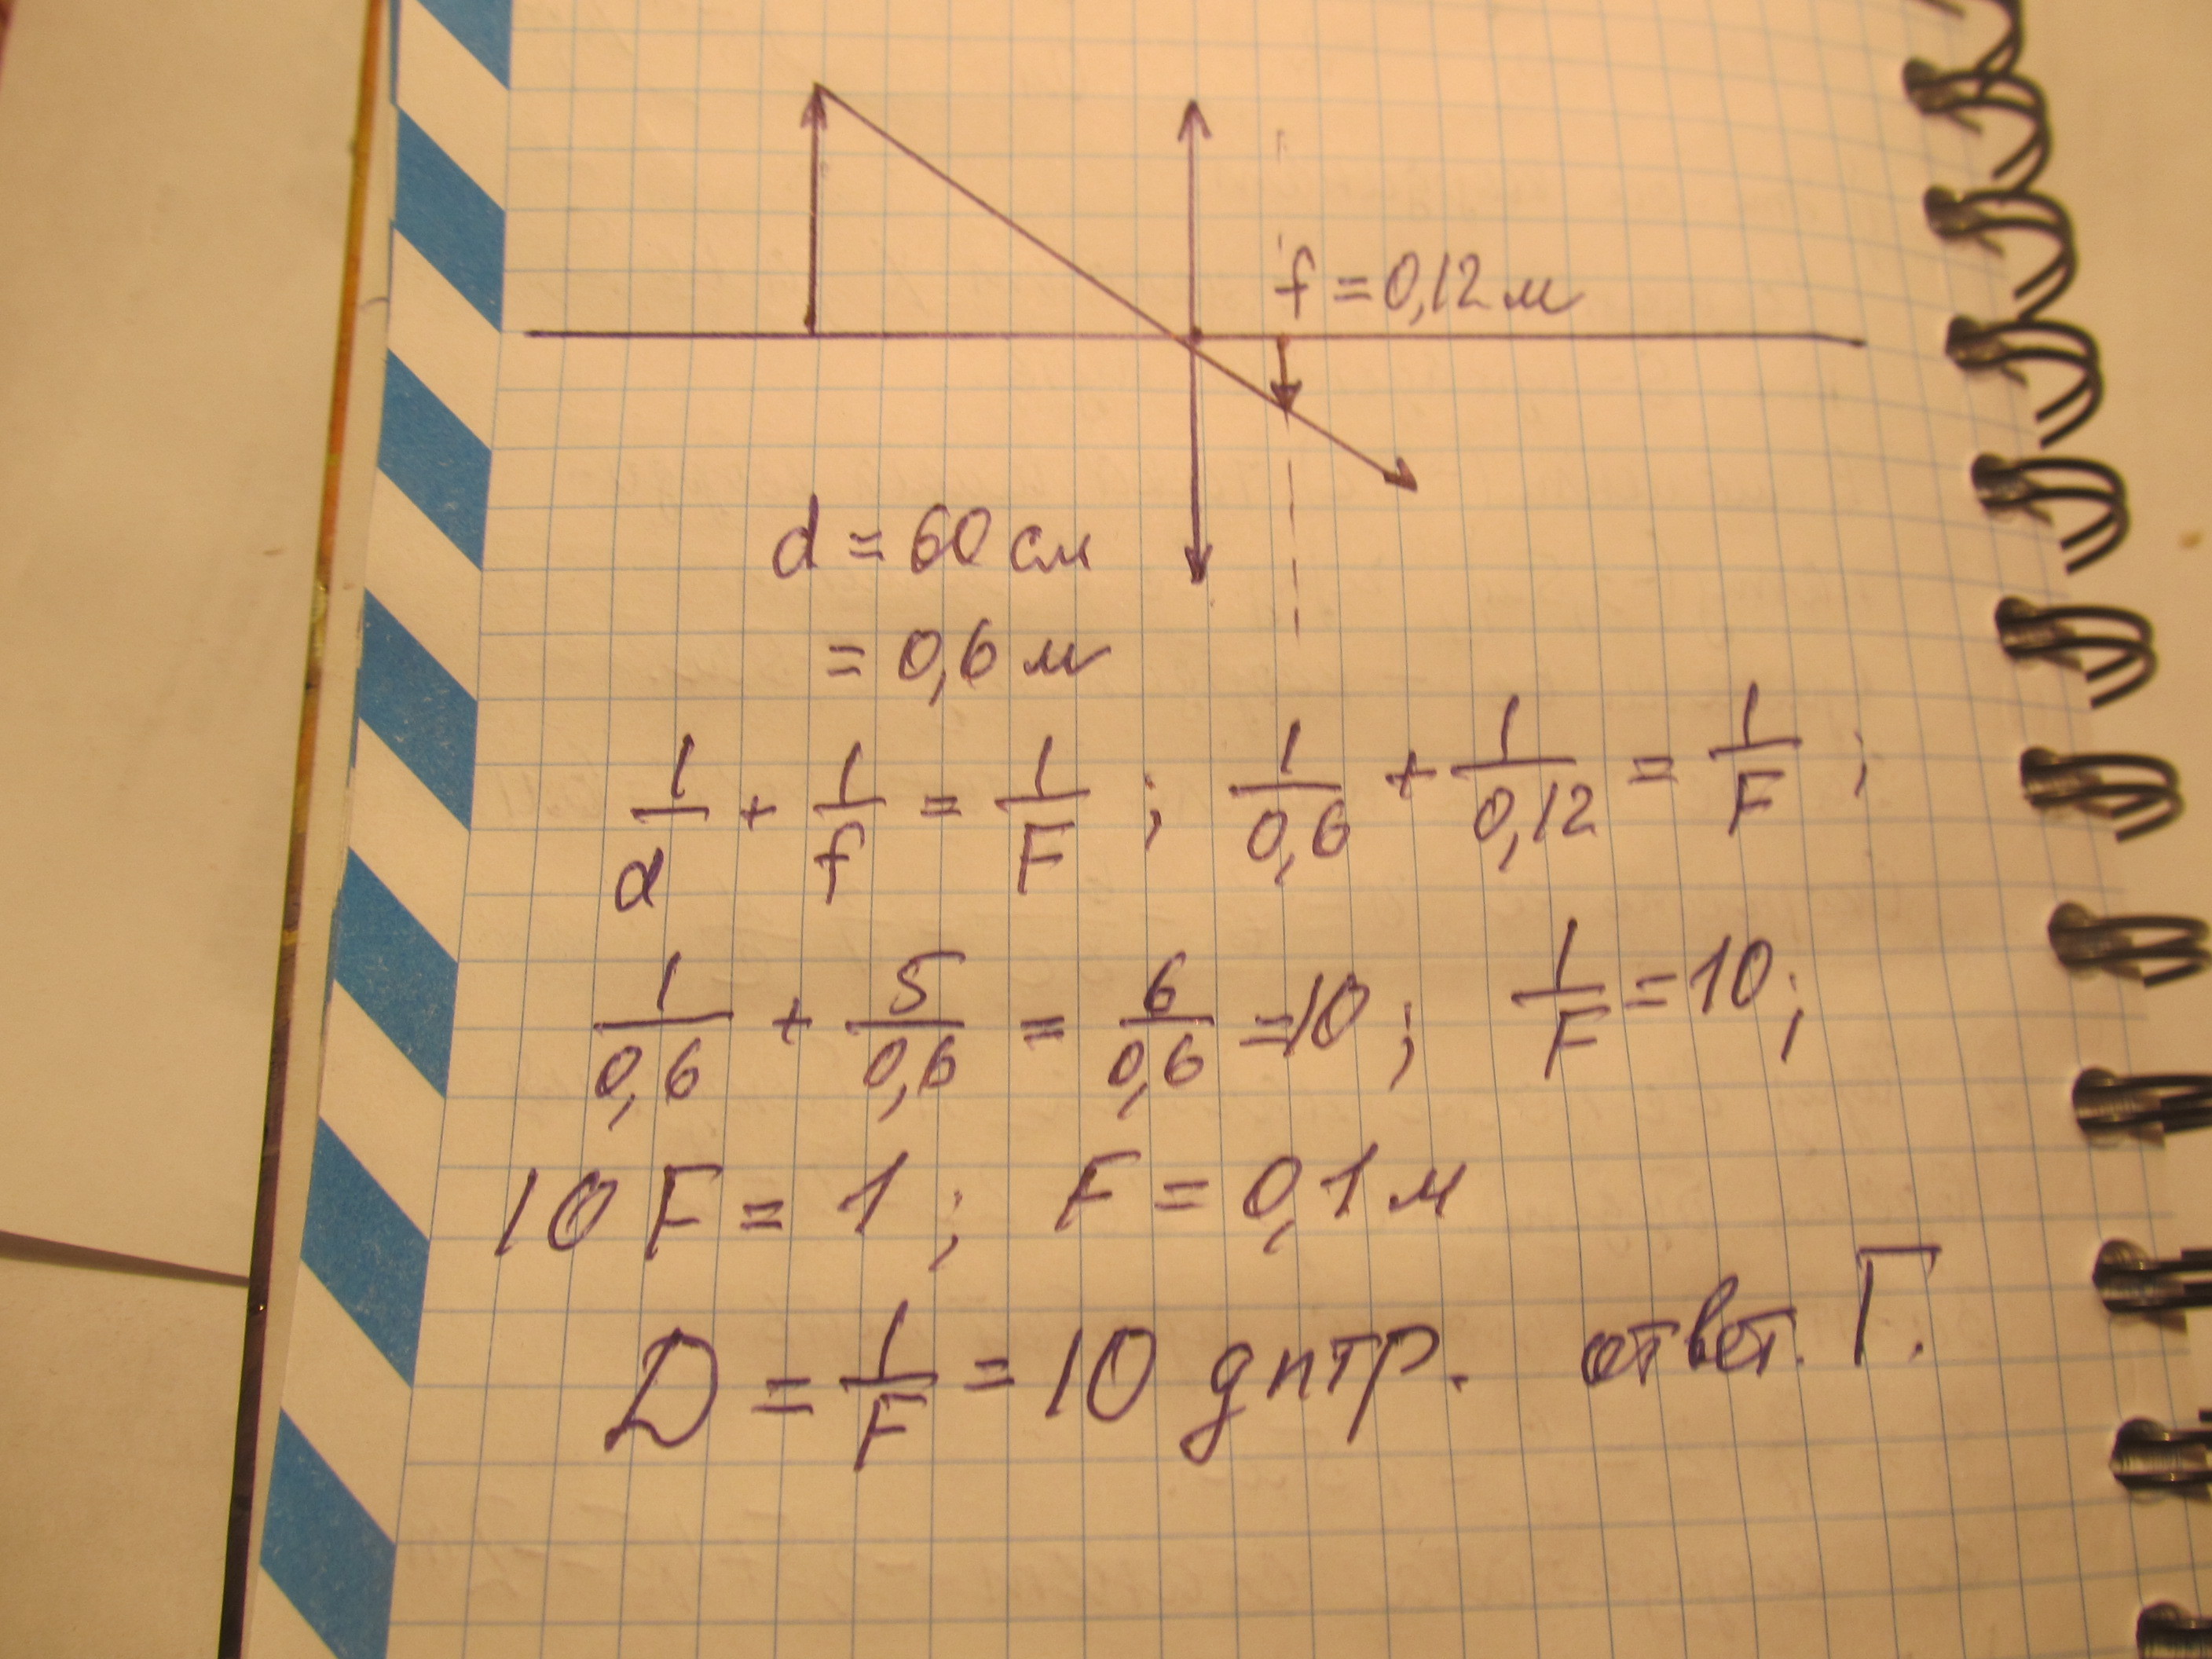 f = 0,12 м
d = 60 см
= 0,6 м
1/d + 1/f = 1/F ; 1/0,6 + 1/0,12 = 1/F ;
1/0,6 + 5/0,6 = 6/0,6 = 10 ; 1/F = 10 ;
10 F = 1 ; F = 0,1 м
D = 1/F = 10 дптр. ответ. Г.